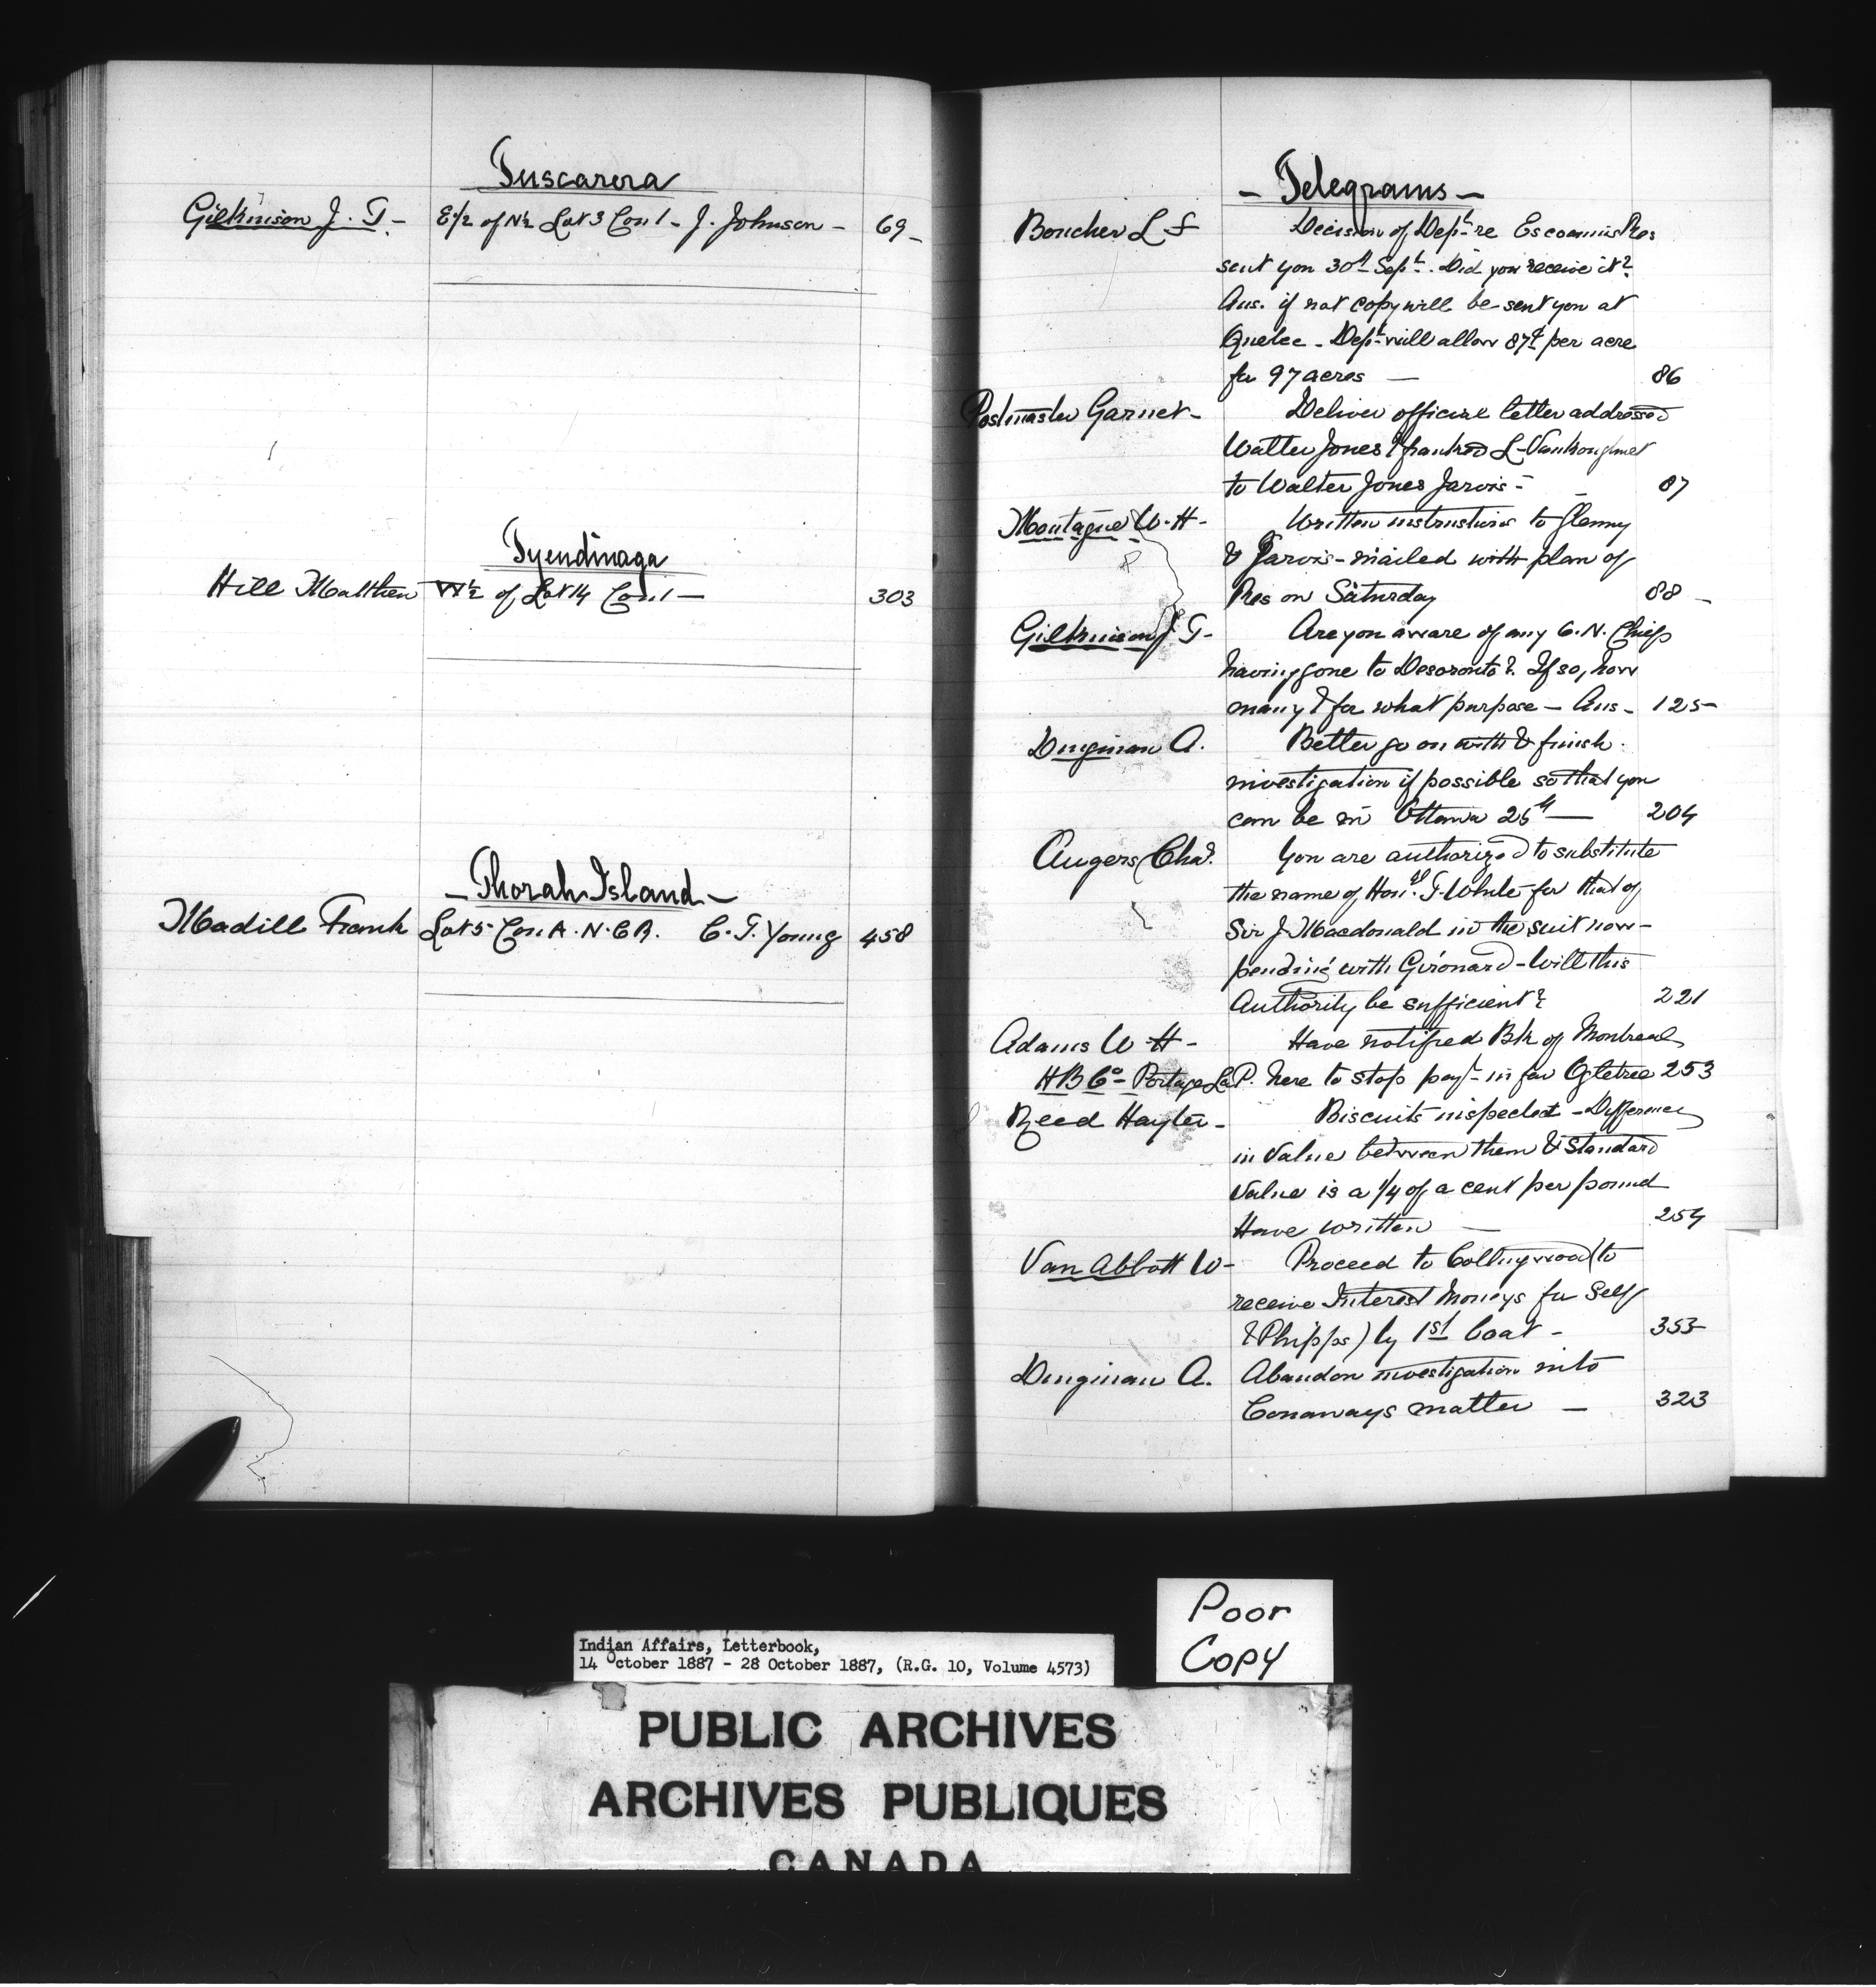 Tuscarora
Gilkinson J. T. - E½ of N½ Lot 3 Con 1 - J. Johnson - 69 -
Tyendinaga
Hill Matthew W½ of Lot 14 Con. 1 - 303
- Thorah Island -
Madill Frank Lot 5 Con. A. N. C. R. C. T. Young 458
- Telegrams -
Boucher L F Decision of Dept re Escoumis Res
sent you 30th Sept. Did you receive it?
Ans. if not copy will be sent you at
Quebec - Dept will allow 87¢ per acre
for 97 acres - 86
Postmaster Garnet - Deliver official letter addressed
Walter Jones & franked L. Vankoughnet
to Walter Jones Jarvis - 87
Montague W. H - Written instructions to Glenny
& Jarvis - mailed with plan of
Res on Saturday 88 -
Gilkinson J. T - Are you aware of any 6. N. Chiefs
having gone to Deseronto? If so, how
many & for what purpose - Ans - 125 -
Dingman A. Better go on with & finish
investigation if possible so that you
can be in Ottawa 25th - 204
Augers Chas. You are authorized to substitute
the name of Hon. T. White for that of
Sir J Macdonald in the suit now -
pending with Gironard - Will this
Authority be sufficient? 221
Adams W. H - Have notified Bk of Montreal
H B Co - Portage La P. here to stop payt - in fav Ogletree 253
Reed Hayter - Biscuits inspected - Difference
in Value between them & Standard
Value is a 1/4 of a cent per pound
Have written - 254
Van Abbott W - Proceed to Collingwood (to
receive Interest Moneys for Self
& Phipps) by 1st boat - 353
Dingman A. Abandon investigation into
Conaways matter - 323
Poor
Copy
Indian Affairs, Letterbook,
14 October 1887 - 28 October 1887, (R.G. 10, Volume 4573)
PUBLIC ARCHIVES
ARCHIVES PUBLIQUES
CANADA